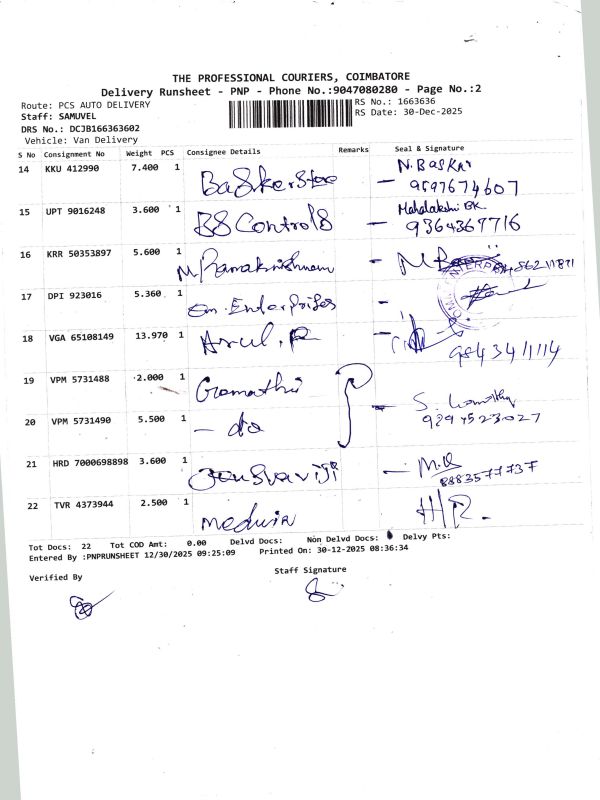 THE PROFESSIONAL COURIERS, COIMBATORE
Delivery Runsheet - PNP - Phone No.:9047080280 - Page No.:2
Route: PCS AUTO DELIVERY
RS No.: 1663636
Staff: SAMUVEL
RS Date: 30-Dec-2025
DRS No.: DCJB166363602
Vehicle: Van Delivery
S No Consignment No Weight PCS Consignee Details Remarks Seal & Signature
14 KKU 412990 7.400 1 Basker Store - N. BASKAR
9597674607
15 UPT 9016248 3.600 1 BS Controls - Mahalakshmi BK
9364367716
16 KRR 50353897 5.600 1 M. Ramakrishnan - M
17 DPI 923016 5.360 1 Om. Enterprises -
18 VGA 65108149 13.970 1 Arul. R -
9843411114
19 VPM 5731488 2.000 1 Gomathi
- S. Gomathy
9294523027
20 VPM 5731490 5.500 1 - do
21 HRD 7000698898 3.600 1 - M.
8883577737
22 TVR 4373944 2.500 1 medwin
Tot Docs: 22 Tot COD Amt: 0.00 Delvd Docs: Non Delvd Docs: Delvy Pts:
Entered By :PNPRUNSHEET 12/30/2025 09:25:09 Printed On: 30-12-2025 08:36:34
Verified By
Staff Signature